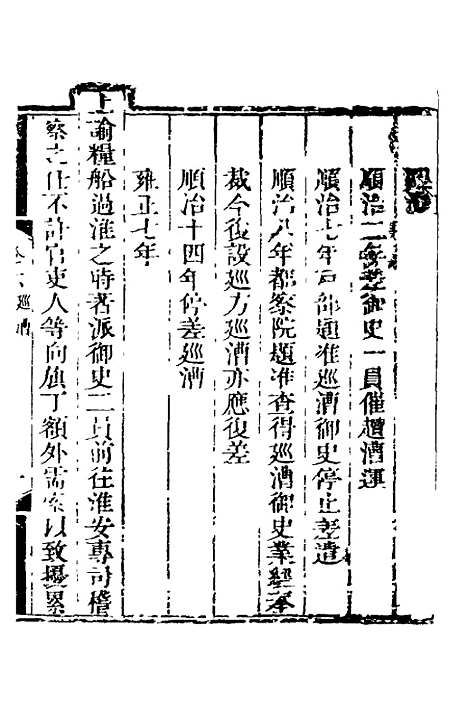 巡漕
順治二年差御史一員催趲漕運
順治七年戸部題准巡漕御史停止差遣
順治八年都察院題准查得巡漕御史業經奉
裁今後設巡方巡漕亦應復差
順治十四年停差巡漕
雍正七年
上諭糧船過淮之時著派御史二員前往淮安專司稽
察之任不許官吏人等向旗丁額外需索以致擾累
巡漕